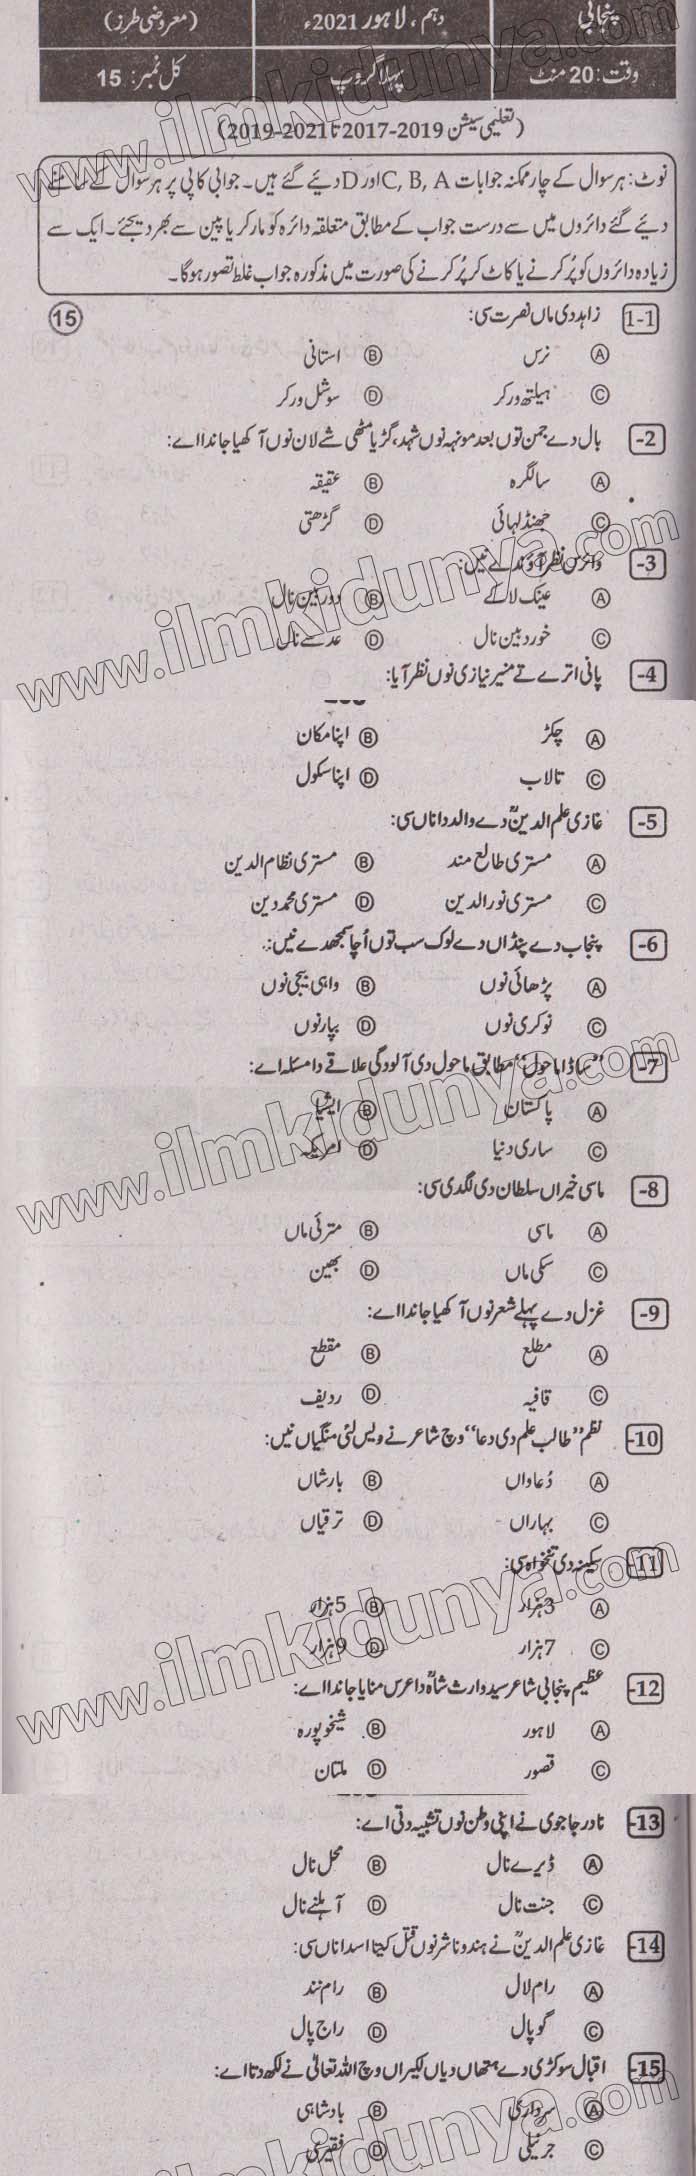 پنجابی	دہم، لاہور 2021ء	(معروضی طرز)
وقت: 20 منٹ	پہلا گروپ	کل نمبر: 15
(تعلیمی سیشن 2019-2017 تا 2021-2019)
نوٹ: ہر سوال کے چار ممکنہ جوابات C, B, A اور D دئیے گئے ہیں۔ جوابی کاپی پر ہر سوال کے سامنے
دئیے گئے دائروں میں سے درست جواب کے مطابق متعلقہ دائرہ کو مارکر یا پین سے بھر دیجئے۔ ایک سے
زیادہ دائروں کو پُر کرنے یا کاٹ کر پُر کرنے کی صورت میں مذکورہ جواب غلط تصور ہوگا۔
1-1 زاہد دی ماں نصرت سی: 15
A نرس B استانی
C ہیلتھ ورکر D سوشل ورکر
-2 بال دے جمن توں بعد مونہہ نوں شہد، گڑ یا مٹھی شے لان نوں آکھیا جاندا اے:
A سالگرہ B عقیقہ
C جھنڈ لہائی D گڑھتی
-3 وائرس نظر آوندے نیں:
A عینک لا کے B دوربین نال
C خوردبین نال D عدسے نال
-4 پانی اترے تے منیر نیازی نوں نظر آیا:
A چکڑ B اپنا مکان
C تالاب D اپنا سکول
-5 غازی علم الدینؒ دے والد دا ناں سی:
A مستری طالع مند B مستری نظام الدین
C مستری نور الدین D مستری محمد دین
-6 پنجاب دے پنڈاں دے لوک سب توں اُچا سمجھدے نیں:
A پڑھائی نوں B واہی بیجی نوں
C نوکری نوں D بپار نوں
-7 ”ساڈا ماحول“ مطابق ماحول دی آلودگی علاقے دا مسئلہ اے:
A پاکستان B ایشیا
C ساری دنیا D امریکہ
-8 ماسی خیراں سلطان دی لگدی سی:
A ماسی B مترئی ماں
C سکی ماں D بھین
-9 غزل دے پہلے شعر نوں آکھیا جاندا اے:
A مطلع B مقطع
C قافیہ D ردیف
-10 نظم ”طالب علم دی دعا“ وچ شاعر نے دیس لئی منگیاں نیں:
A دُعاواں B بارشاں
C بہاراں D ترقیاں
-11 سکینہ دی تنخواہ سی:
A 3 ہزار B 5 ہزار
C 7 ہزار D 9 ہزار
-12 عظیم پنجابی شاعر سید وارث شاہؒ دا عرس منایا جاندا اے:
A لاہور B شیخوپورہ
C قصور D ملتان
-13 نادر جاجوی نے اپنی وطن نوں تشبیہ دتی اے:
A ڈیرے نال B محل نال
C جنت نال D آہلنے نال
-14 غازی علم الدینؒ نے ہندو ناشر نوں قتل کیتا اسدا ناں سی:
A رام لال B رام نند
C گوپال D راج پال
-15 اقبال سوکڑی دے ہتھاں دیاں لکیراں وچ اللہ تعالیٰ نے لکھ دتا اے:
A سرداری B بادشاہی
C جرنیلی D فقیری
www.ilmkidunya.com
www.ilmkidunya.com
www.ilmkidunya.com
www.ilmkidunya.com
www.ilmkidunya.com